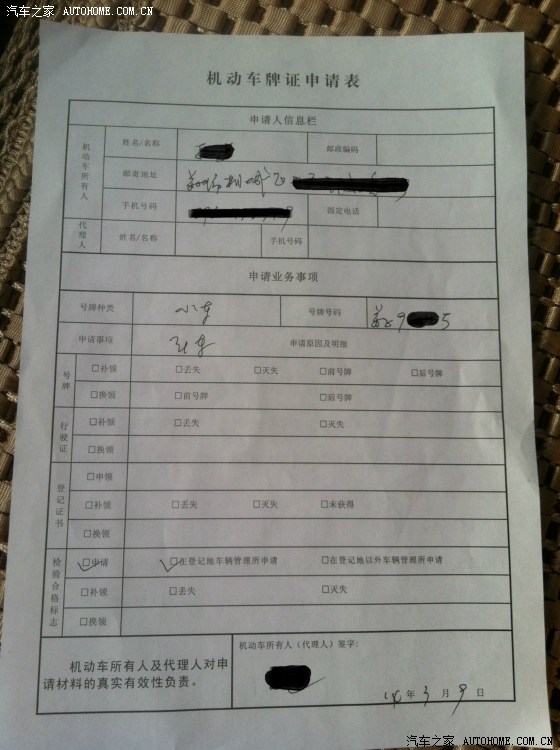 汽车之家 AUTOHOME.COM.CN
机动车牌证申请表
申请人信息栏
机动车所有人
姓名/名称 邮政编码
邮寄地址
手机号码 固定电话
代理人 姓名/名称 手机号码
申请业务事项
号牌种类 小车 号牌号码 苏 9 5
申请事项 申请原因及明细
号牌 □补领 □丢失 □灭失 □前号牌 □后号牌
□换领 □前号牌 □后号牌
行驶证 □补领 □丢失 □灭失
□换领
登记证书 □申领
□补领 □丢失 □灭失 □未获得
□换领
检验合格标志 □申请 □在登记地车辆管理所申请 □在登记地以外车辆管理所申请
□补领 □丢失 □灭失
□换领
机动车所有人及代理人对申
请材料的真实有效性负责。
机动车所有人(代理人)签字:
年 3 月 9 日
汽车之家 AUTOHOME.COM.CN